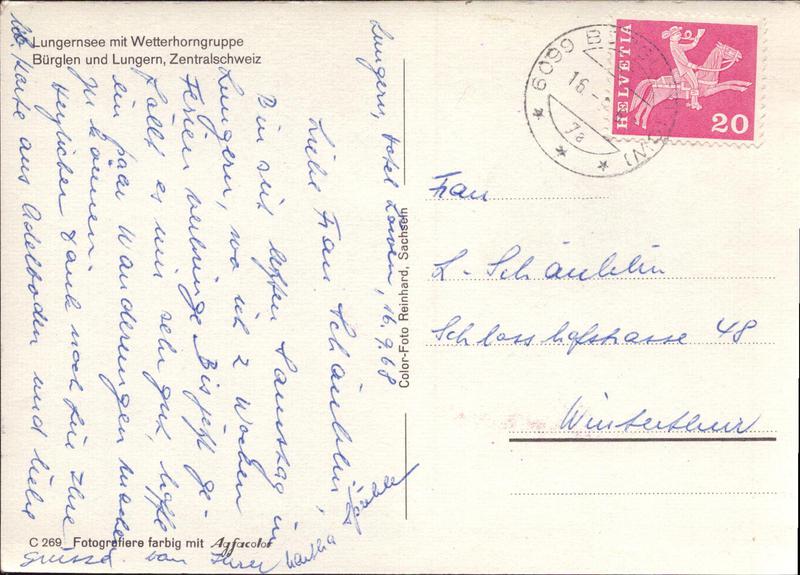 Lungernsee mit Wetterhorngruppe
Bürglen und Lungern, Zentralschweiz
Lungern, Hotel Löwen, 16.9.68
Liebe Frau Schäublin,
Bin seit letzten Samstag in
Lungern, wo ich 2 Wochen
Ferien verbringe. Bis jetzt ge-
fällt es mir sehr gut, hoffe
ein paar Wanderungen machen
zu können.
Herzlichen Dank noch für Ihre
lb. Karte aus Adelboden und liebe
Grüsse von Ihrer Martha
C 269 Fotografiere farbig mit Agfacolor
Color-Foto Reinhard, Sachseln
6099 B
16.
HELVETIA
20
Frau
L. Schäublin
Schlosshofstrasse 48
Winterthur